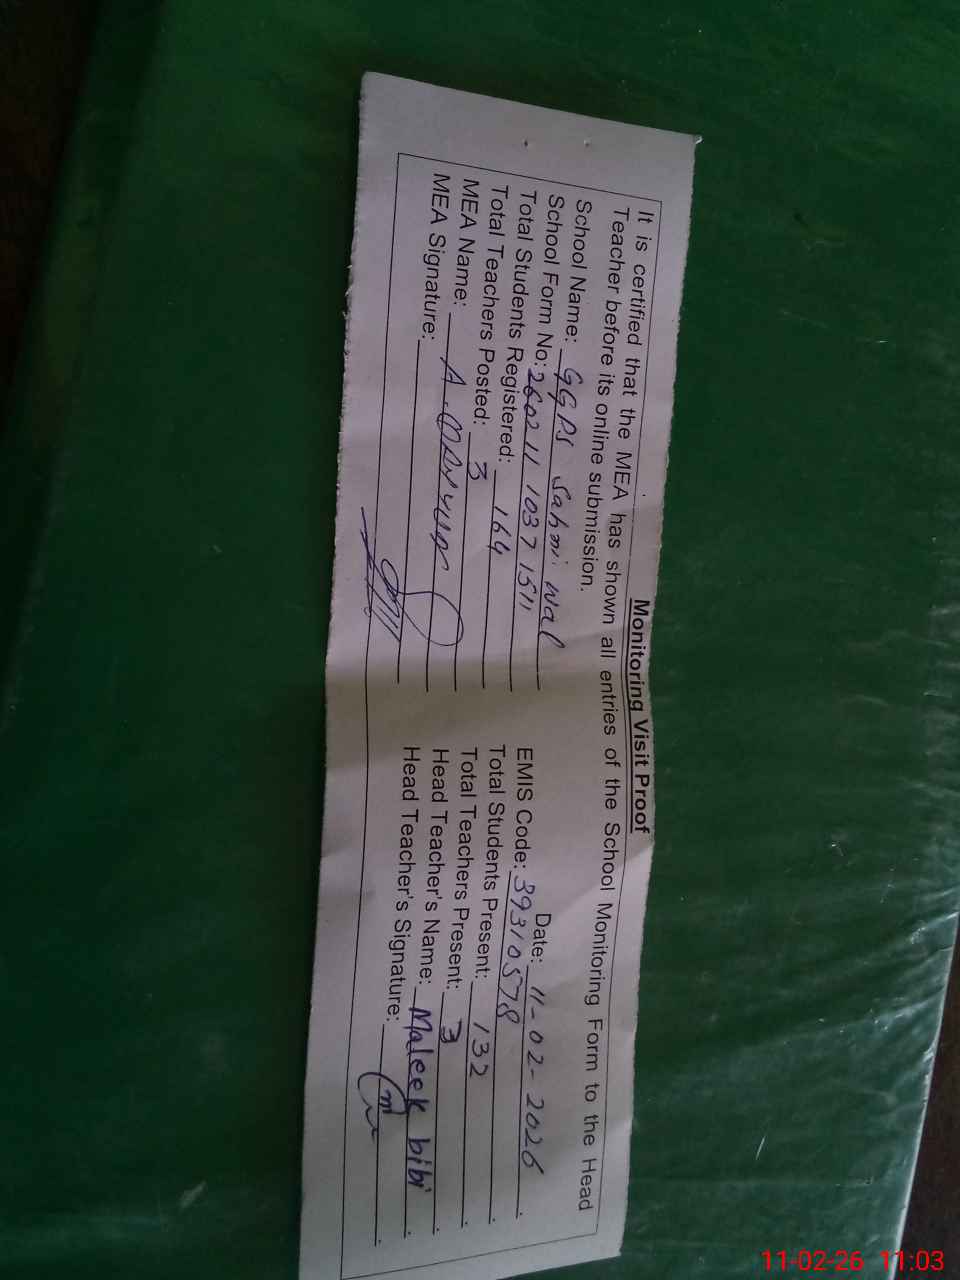 Monitoring Visit Proof
It is certified that the MEA has shown all entries of the School Monitoring Form to the Head
Teacher before its online submission.
Date: 11-02-2026
School Name: GGPS Sahni wal
School Form No: 26021110371511 EMIS Code: 39310578
Total Students Registered: 164 Total Students Present: 132
Total Teachers Posted: 3 Total Teachers Present: 3
MEA Name: A. Head Teacher's Name: Maleek bibi
MEA Signature: Head Teacher's Signature:
11-02-26 11:03